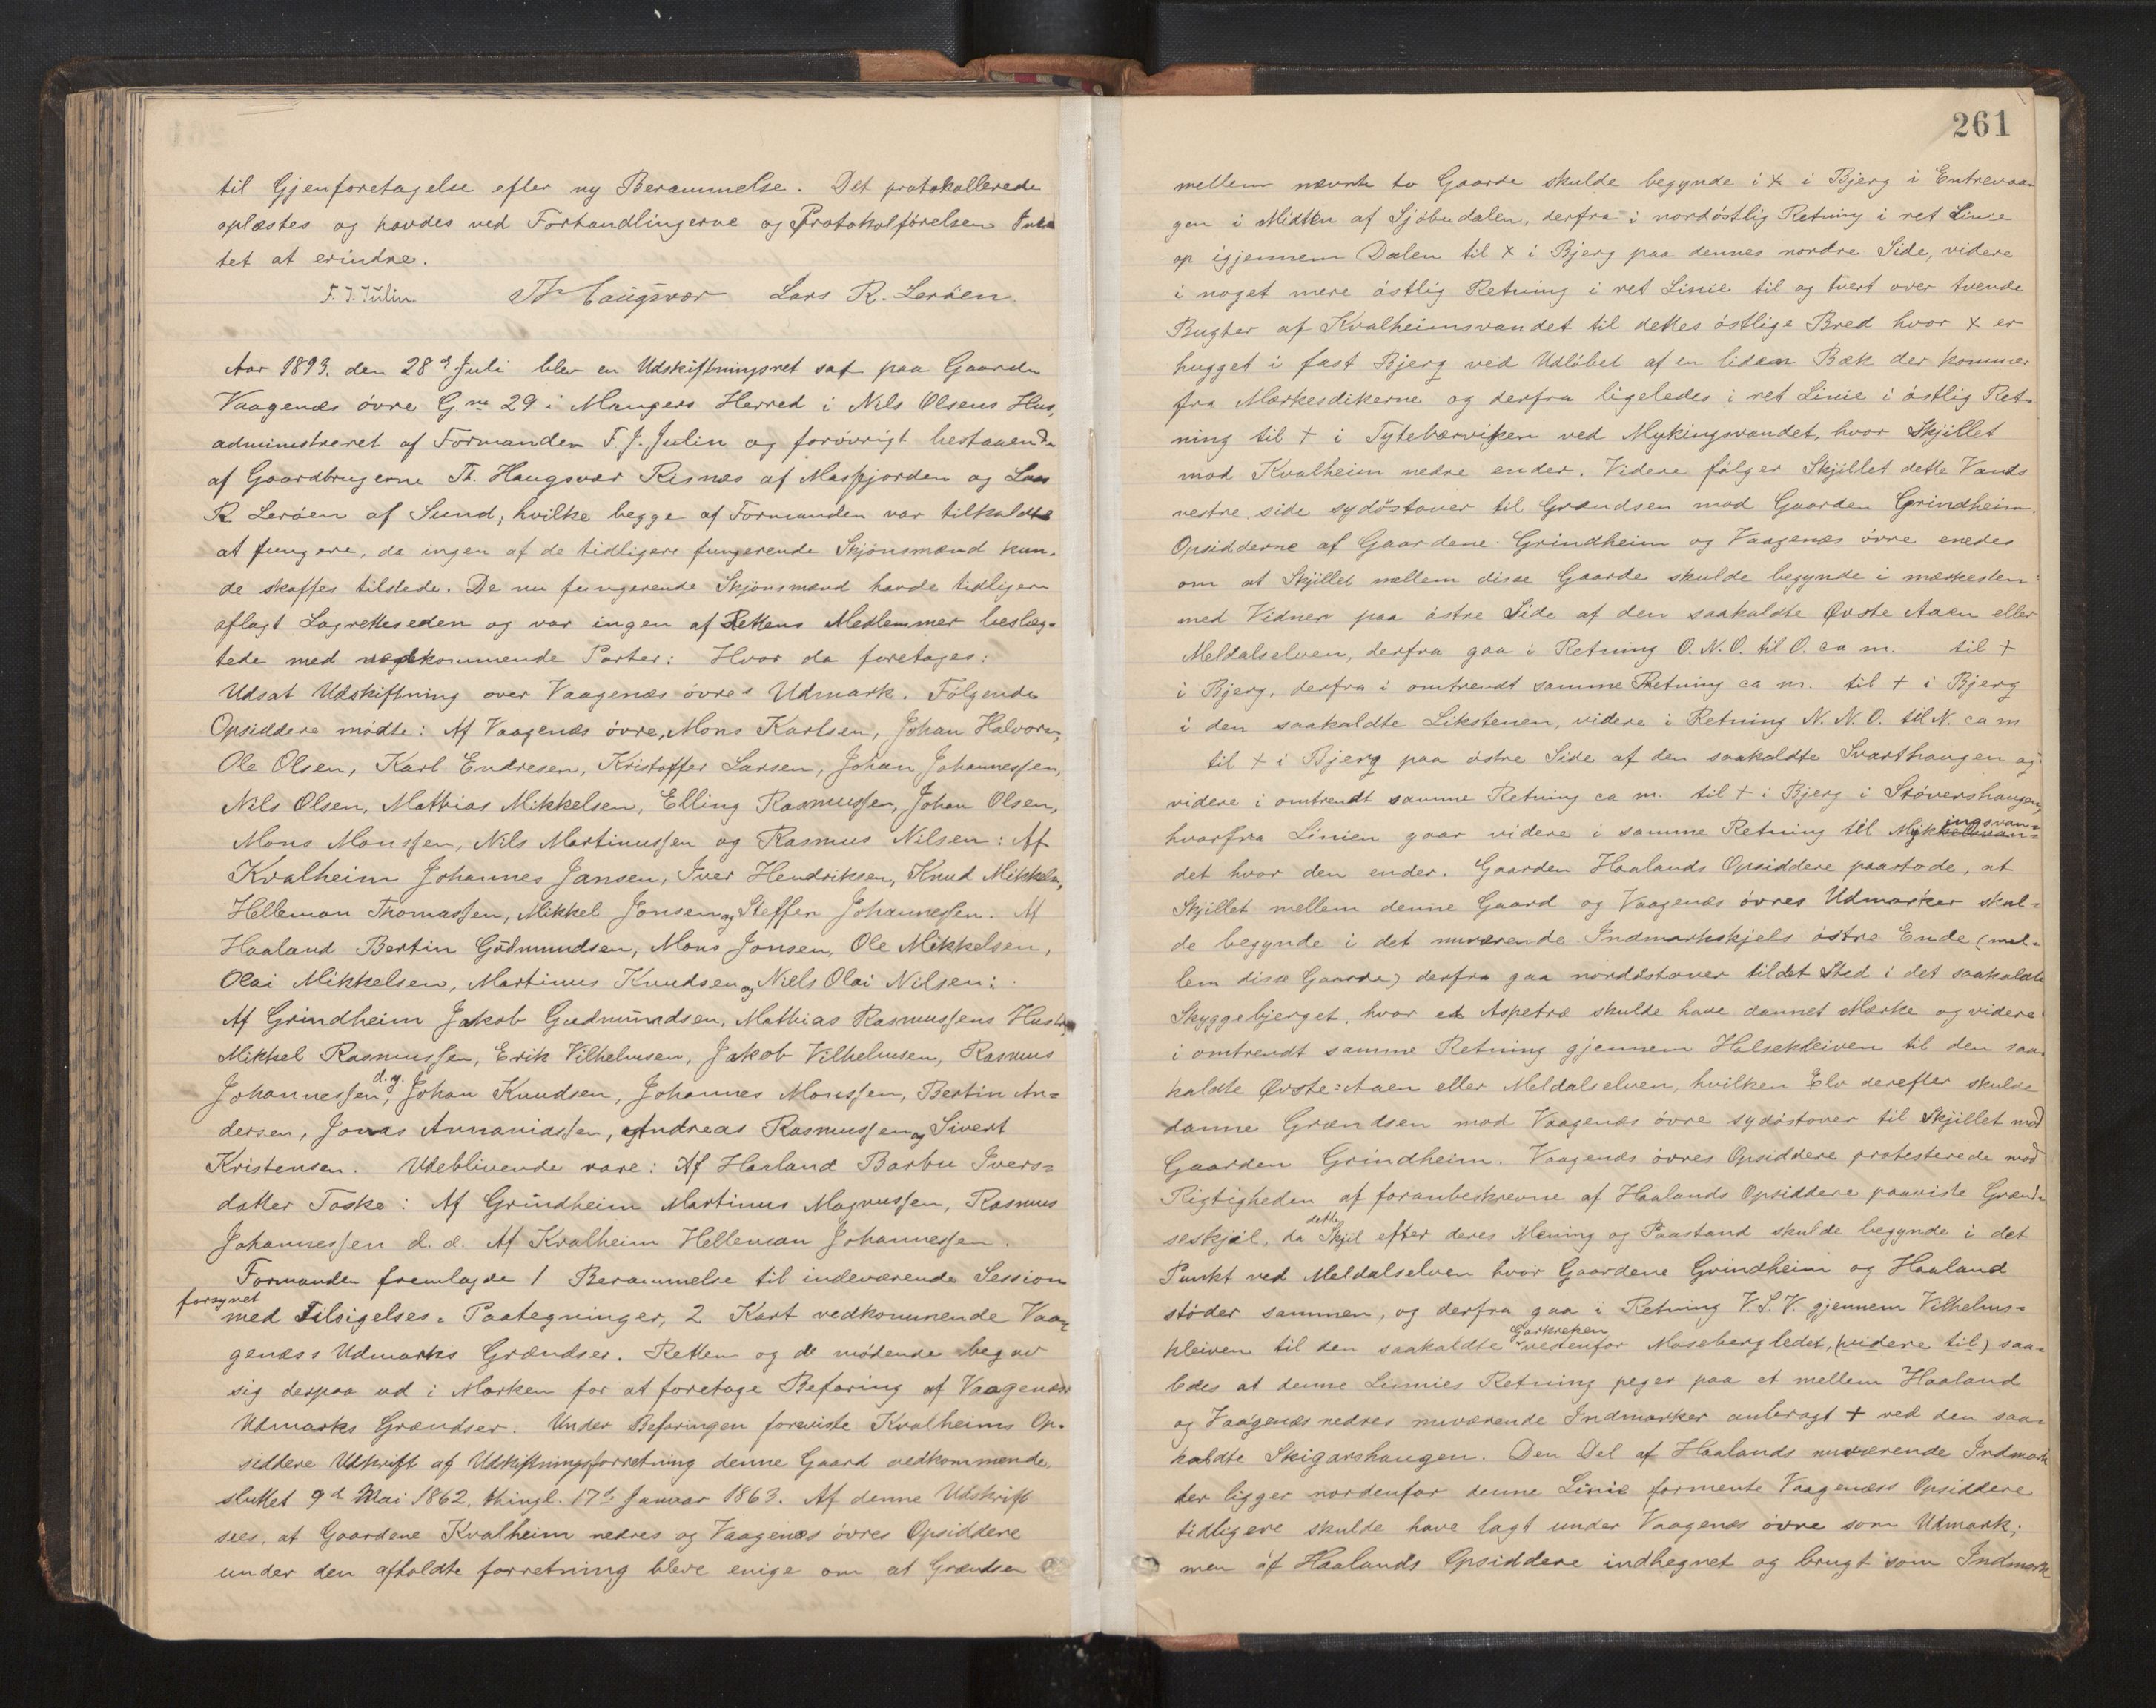 til Gjenforetagelse efter ny Berammelse. Det protokollerede
oplæstes og havdes ved Forhandlingerne og Protokolførelsen Inte
tet at erindre.
F. J. Julin. Th Haugsvær Lars R. Lerøen.
Aar 1893. den 28de Juli blev en Udskiftningsret sat paa Gaarden
Vaagenæs øvre G. no 29 i Mangers Herred i Nils Olsens Hus,
administreret af Formanden F. J. Julin og forøvrigt bestaaende
af Gaardbrugerne Th. Haugsvær Risnæs af Masfjorden og Lars
R Lerøen af Sund, hvilke begge af Formanden var tilkaldte
at fungere, da ingen af de tidligere fungerende Skjønsmænd kun-
de skaffes tilstede. De nu fungerende Skjønsmænd havde tidligere
aflagt Lagretteseden og var ingen af Rettens Medlemmer beslæg-
tede med vedkommende Parter: Hvor da foretages:
Udsat Udskiftning over Vaagenæs øvres Udmark. Følgende
Opsiddere mødte: Af Vaagenæs øvre, Mons Karlsen, Johan Halvorsen,
Ole Olsen, Karl Endresen, Kristoffer Larsen, Johan Johannessen,
Nils Olsen, Mathias Mikkelsen, Elling Rasmussen, Johan Olsen,
Mons Monssen, Nils Martinussen og Rasmus Nilsen: Af
Kvalheim Johannes Jansen, Iver Hendriksen, Knud Mikkelsen,
Helleman Thomassen, Mikkel Jonsen og Steffen Johannessen. Af
Haaland Bertin Gudmundsen, Mons Jonsen, Ole Mikkelsen,
Olai Mikkelsen, Martinus Knudsen og Niels Olai Nilsen:
Af Grindheim Jakob Gudmundsen, Mathias Rasmussens Hustru
Mikkel Rasmussen, Erik Vilhelmsen, Jakob Vilhelmsen, Rasmus
Johannessen d. y., Johan Knudsen, Johannes Monssen, Bertin An=
dersen, Jonas Annaniassen, Andreas Rasmussen og Sivert
Kristensen. Udeblivende vare: Af Haaland Barbu Ivers=
datter Toske: Af Grindheim Martinus Magnussen, Rasmus
Johannessen d. æ. Af Kvalheim Helleman Johannessen.
Formanden fremlagde 1 Berammelse til indeværende Session
forsynet med Tilsigelses-Paategninger, 2 Kart vedkommende Vaa-
genæs s Udmarks Grændser. Retten og de mødende begav
sig derpaa ud i Marken for at foretage Befaring af Vaagenæs
Udmarks Grændser. Under Befaringen foreviste Kvalheims Op-
siddere Udskrift af Udskiftningsforretning denne Gaard vedkommende,
sluttet 9de Mai 1862, thingl. 17de Januar 1863. Af denne Udskrift
sees, at Gaardene Kvalheim nedres og Vaagenæs øvres Opsiddere
under den afholdte forretning bleve enige om at Grændsen
261
mellem nævnte to Gaarde skulde begynde i x i Bjerg i Entrevaa-
gen i Midten af Sjøbudalen, derfra i nordøstlig Retning i ret Linie
op igjennem Dalen til x i Bjerg paa dennes nordre Side, videre
i noget mere østlig Retning i ret Linie til og tvert over tvende
Bugter af Kvalheimsvandet til dettes østlige Bred hvor x er
hugget i fast Bjerg ved Udløbet af en liden Bæk der kommer
fra Markesdikerne og derfra ligeledes i ret Linie i østlig Ret-
ning til + i Tytebærviken ved Mykingsvandet, hvor Skjillet
mod Kvalheim nedre ender. Videre følger Skjillet dette Vands
vestre side sydøstover til Grændsen mod Gaarden Grindheim.
Opsidderne af Gaardene Grindheim og Vaagenæs øvre enedes
om at Skjillet mellem disse Gaarde skulde begynde i mærkesten
med Vidner paa østre Side af den saakaldte Øvste Aaen eller
Meldalselven, derfra gaa i Retning O. N. O. til O. ca m. til +
i Bjerg, derfra i omtrendt samme Retning ca m. til + i Bjerg
i den saakaldte Likstenen, videre i Retning N. N. O. til N. ca m
til + i Bjerg paa østre Side af den saakaldte Svarthaugen og
videre i omtrendt samme Retning ca m. til + i Bjerg i Støvershaugen,
hvorfra Linien gaar videre i samme Retning til Mykingsvan=
det hvor den ender. Gaarden Haalands Opsiddere paastode, at
Skjillet mellem denne Gaard og Vaagenæs øvres Udmarker skul=
de begynde i det nuværende Indmarkskjels østre Ende (mel-
lem disse Gaarde) derfra gaa nordøstover til det Sted i det saakaldte
Skyggebjerget, hvor et Aspetræ skulde have dannet Mærke og videre
i omtrendt samme Retning gjennem Halsekleiven til den saa-
kaldte Øvste=Aaen eller Meldalselven, hvilken Elv derefter skulde
danne Grændsen mod Vaagenæs øvre sydøstover til Skjillet mod
Gaarden Grindheim. Vaagenæs øvres Opsiddere protesterede mod
Rigtigheden af foranbeskrevne af Haalands Opsiddere paaviste Grænd-
seskjel, da dette Skjel efter deres Mening og Paastand skulde begynde i det
Punkt ved Meldalselven hvor Gaardene Grindheim og Haaland
støder sammen, og derfra gaa i Retning V. S. V. gjennem Vilhelms=
kleiven til den saakaldte Garkreken vestenfor Mosebergledet, (videre til) saa-
ledes at denne Linnies Retning peger paa et mellem Haaland
og Vaagenæs nedres nuværende Indmarker anbragt + ved den saa-
kaldte Skigarshaugen. Den Del af Haalands nuværende Indmark
der ligger nordenfor denne Linie formente Vaagenæss Opsiddere
tidligere skulde have lagt under Vaagenæs øvre som Udmark;
men af Haalands Opsiddere indhegnet og brugt som Indmark